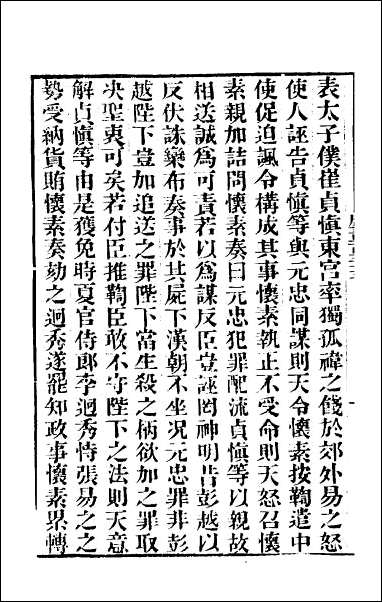 表太子僕崔貞愼東宫率獨孤禕之餞於郊外易之怒
使人誣告貞愼等與元忠同謀則天令懷素按鞫遣中
使促迫諷令構成其事懷素執正不受命則天怒召懷
素親加詰問懷素奏曰元忠犯罪配流貞愼等以親故
相送誠爲可責若以爲謀反臣豈誣罔神明昔彭越以
反伏誅欒布奏事於其屍下漢朝不坐况元忠罪非彭
越陛下豈加追送之罪陛下當生殺之柄欲加之罪取
决聖衷可矣若付臣推鞫臣敢不守陛下之法則天意
解貞愼等由是獲免時夏官侍郎李迥秀恃張易之之
勢受納貨賄懷素奏劾之迥秀遂罷知政事懷素累轉